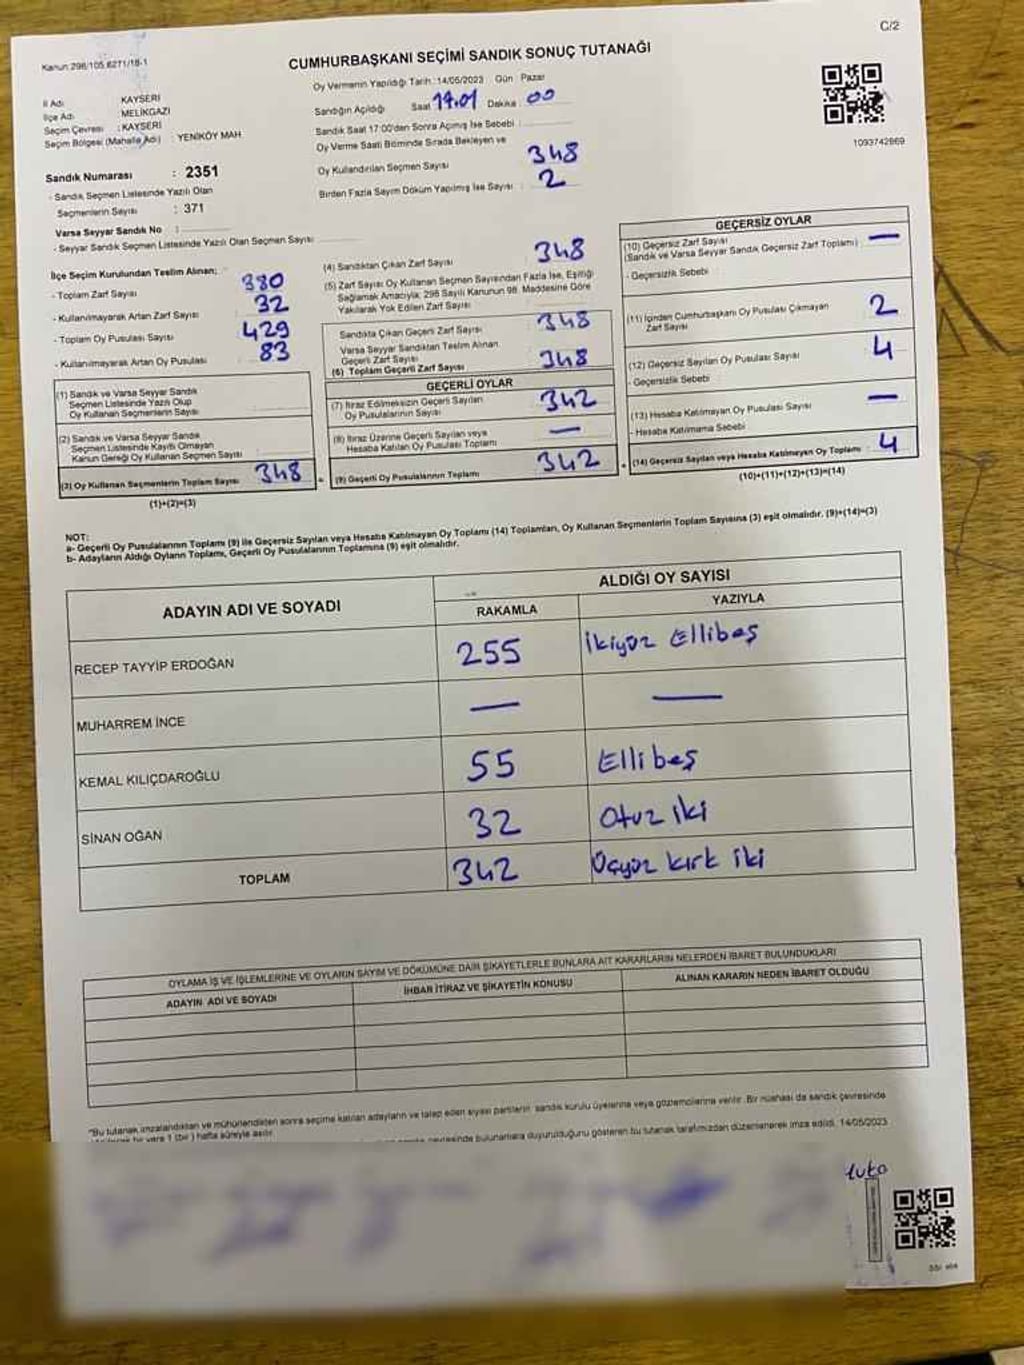 C/2
Kanun:298/105,6271/18-1
CUMHURBAŞKANI SEÇİMİ SANDIK SONUÇ TUTANAĞI
İl Adı : KAYSERİ
İlçe Adı : MELİKGAZİ
Seçim Çevresi : KAYSERİ
Seçim Bölgesi (Mahalle Adı) : YENİKÖY MAH.
Sandık Numarası : 2351
- Sandık Seçmen Listesinde Yazılı Olan
Seçmenlerin Sayısı : 371
Varsa Seyyar Sandık No :
- Seyyar Sandık Seçmen Listesinde Yazılı Olan Seçmen Sayısı
Oy Vermenin Yapıldığı Tarih :14/05/2023 Gün : Pazar
Sandığın Açıldığı Saat 17.01 Dakika : 00
Sandık Saat 17:00'den Sonra Açımış İse Sebebi :
Oy Verme Saati Bitiminde Sırada Bekleyen ve
Oy Kullandırılan Seçmen Sayısı 348
Birden Fazla Sayım Döküm Yapılmış İse Sayısı : 2
1093742869
İlçe Seçim Kurulundan Teslim Alınan;
- Toplam Zarf Sayısı : 380
- Kullanılmayarak Artan Zarf Sayısı : 32
- Toplam Oy Pusulası Sayısı : 429
- Kullanılmayarak Artan Oy Pusulası : 83
(1) Sandık ve Varsa Seyyar Sandık
Seçmen Listesinde Yazılı Olup
Oy Kullanan Seçmenlerin Sayısı :
(2) Sandık ve Varsa Seyyar Sandık
Seçmen Listesinde Kayıtlı Olmayan
Kanun Gereği Oy Kullanan Seçmen Sayısı :
(3) Oy Kullanan Seçmenlerin Toplam Sayısı : 348
(1)+(2)=(3)
(4) Sandıktan Çıkan Zarf Sayısı : 348
(5) Zarf Sayısı Oy Kullanan Seçmen Sayısından Fazla İse, Eşitliği
Sağlamak Amacıyla; 298 Sayılı Kanunun 98. Maddesine Göre
Yakılarak Yok Edilen Zarf Sayısı :
Sandıkta Çıkan Geçerli Zarf Sayısı : 348
Varsa Seyyar Sandıktan Teslim Alınan
Geçerli Zarf Sayısı :
(6) Toplam Geçerli Zarf Sayısı : 348
GEÇERLİ OYLAR
(7) İtiraz Edilmeksizin Geçerli Sayılan
Oy Pusulalarının Sayısı : 342
(8) İtiraz Üzerine Geçerli Sayılan veya
Hesaba Katılan Oy Pusulası Toplamı : —
(9) Geçerli Oy Pusulalarının Toplamı : 342
GEÇERSİZ OYLAR
(10) Geçersiz Zarf Sayısı : —
(Sandık ve Varsa Seyyar Sandık Geçersiz Zarf Toplamı)
- Geçersizlik Sebebi :
(11) İçinden Cumhurbaşkanı Oy Pusulası Çıkmayan
Zarf Sayısı : 2
(12) Geçersiz Sayılan Oy Pusulası Sayısı : 4
- Geçersizlik Sebebi :
(13) Hesaba Katılmayan Oy Pusulası Sayısı : —
- Hesaba Katılmama Sebebi :
(14) Geçersiz Sayılan veya Hesaba Katılmayan Oy Toplamı : 4
(10)+(11)+(12)+(13)=(14)
NOT:
a- Geçerli Oy Pusulalarının Toplamı (9) ile Geçersiz Sayılan veya Hesaba Katılmayan Oy Toplamı (14) Toplamları, Oy Kullanan Seçmenlerin Toplam Sayısına (3) eşit olmalıdır. (9)+(14)=(3)
b- Adayların Aldığı Oyların Toplamı, Geçerli Oy Pusulalarının Toplamına (9) eşit olmalıdır.
ADAYIN ADI VE SOYADI
ALDIĞI OY SAYISI
RAKAMLA YAZIYLA
RECEP TAYYİP ERDOĞAN 255 İkiyüz Ellibeş
MUHARREM İNCE — —
KEMAL KILIÇDAROĞLU 55 Ellibeş
SİNAN OĞAN 32 Otuz iki
TOPLAM 342 Üçyüz kırk iki
OYLAMA İŞ VE İŞLEMLERİNE VE OYLARIN SAYIM VE DÖKÜMÜNE DAİR ŞİKAYETLERLE BUNLARA AİT KARARLARIN NELERDEN İBARET BULUNDUKLARI
ADAYIN ADI VE SOYADI İHBAR İTİRAZ VE ŞİKAYETİN KONUSU ALINAN KARARIN NEDEN İBARET OLDUĞU
"Bu tutanak imzalandıktan ve mühürlendikten sonra seçime katılan adayların ve talep eden siyasi partilerin sandık kurulu üyelerine veya gözlemcilerine verilir. Bir nüshası da sandık çevresinde
1 (bir) hafta süreyle asılır.
çevresinde bulunanlara duyurulduğunu gösteren bu tutanak tarafımızdan düzenlenerek imza edildi. 14/05/2023